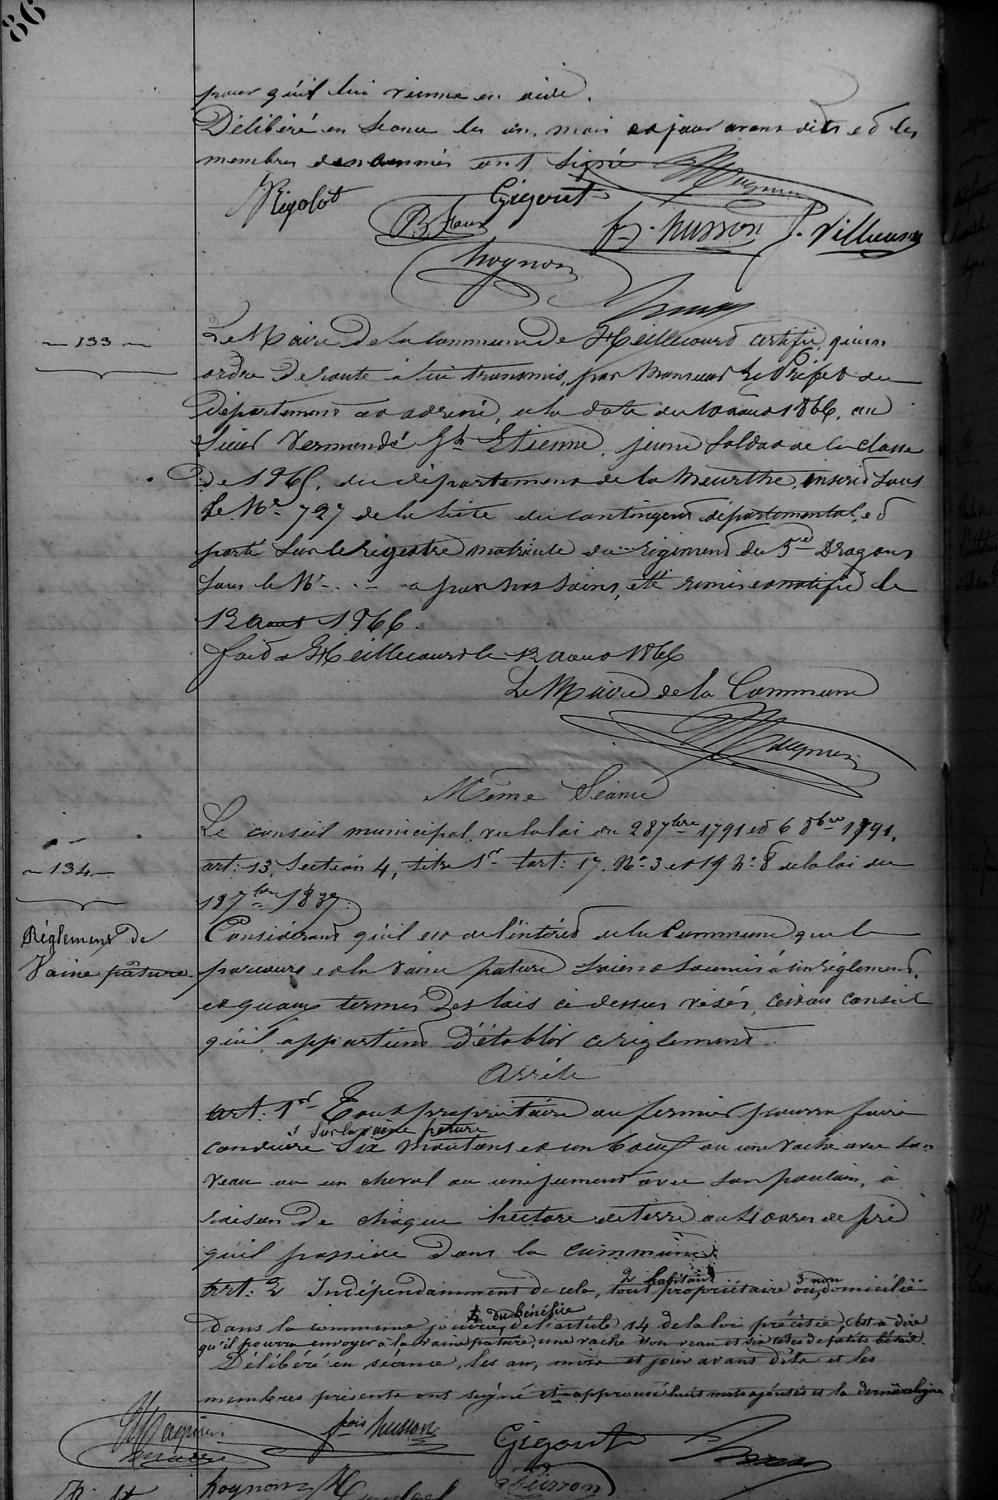 86
pour qu'il lui vienne en aide.
Délibéré en séance les an, mois et jour avant dits et les
membres dénommés ont signé Maugnin
Rigolot Gigout
F. husson J. Villaume
hognon
— 133 —
Le Maire de la Commune de Heillecourt certifie qu'un
ordre de route à lui transmis, par Monsieur le Préfet du
département et adressé, à la date du 10 aout 1866, au
Sieur Vermandé Jh Etienne, jeune soldat de la classe
de 1865, du département de la Meurthe, inscrit sous
le No 727 de la liste du contingent départemental, et
porté sur le registre matricule du régiment du 5me Dragons
sous le No . . . a par nos soins, été remis et notifié le
12 aout 1866.
fait à Heillecourt le 12 aout 1866
Le Maire de la Commune
Maugnin
Même Séance
— 134 —
Le conseil municipal, vu la loi du 28 7bre 1791 et 6 8bre 1791,
art: 13, Section 4, titre 1er, art: 17, No 3 et 19 No 8 de la loi du
18 7bre 1837.
Réglement de
Vaine pâture
Considérant qu'il est de l'intérêt de la Commune que le
parcours et la vaine pature soient soumis à un réglement,
et qu'aux termes des lois ci dessus visées, c'est au conseil
qu'il appartient d'établir ce réglement.
Arrête
art: 1er Tout propriétaire ou fermier pourra faire
sur la vaine pature
conduire six moutons et un boeuf ou une vache avec son
veau ou un cheval ou une jument avec son poulain, à
raison de chaque hectare de terre ou 40 ares de pré
qu'il possède dans la commune.
2 habitant 3 non
Art: 2 Indépendamment de cela, tout propriétaire ou domicilié
4 du bénéfice
dans la commune jouira, de l'article 14 de la loi précitée, c'est à dire
qu'il pourra envoyer à la vaine pature, une vache son veau et six têtes de petits bétail
Délibéré en séance, les an, mois et jour avant dits et les
membres présents ont signé et approuvé huit mots ajoutés et la dernière ligne
Maugnin maire fois husson Gigout
hognon husson